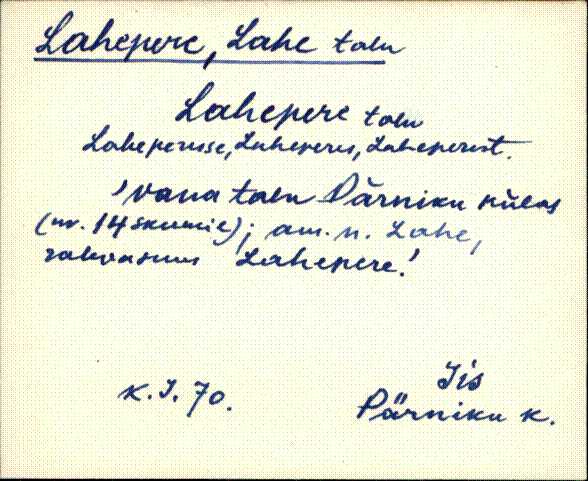 Lahepere, Lahe talu
Lahepere talu
Laheperesse, Laheperes, Laheperest.
'vana talu Pärniku külas
(nr. 14 skeemil); am. n. Lahe,
rahvasuus Lahepere.'
Jis
K. J. 70.
Pärniku k.